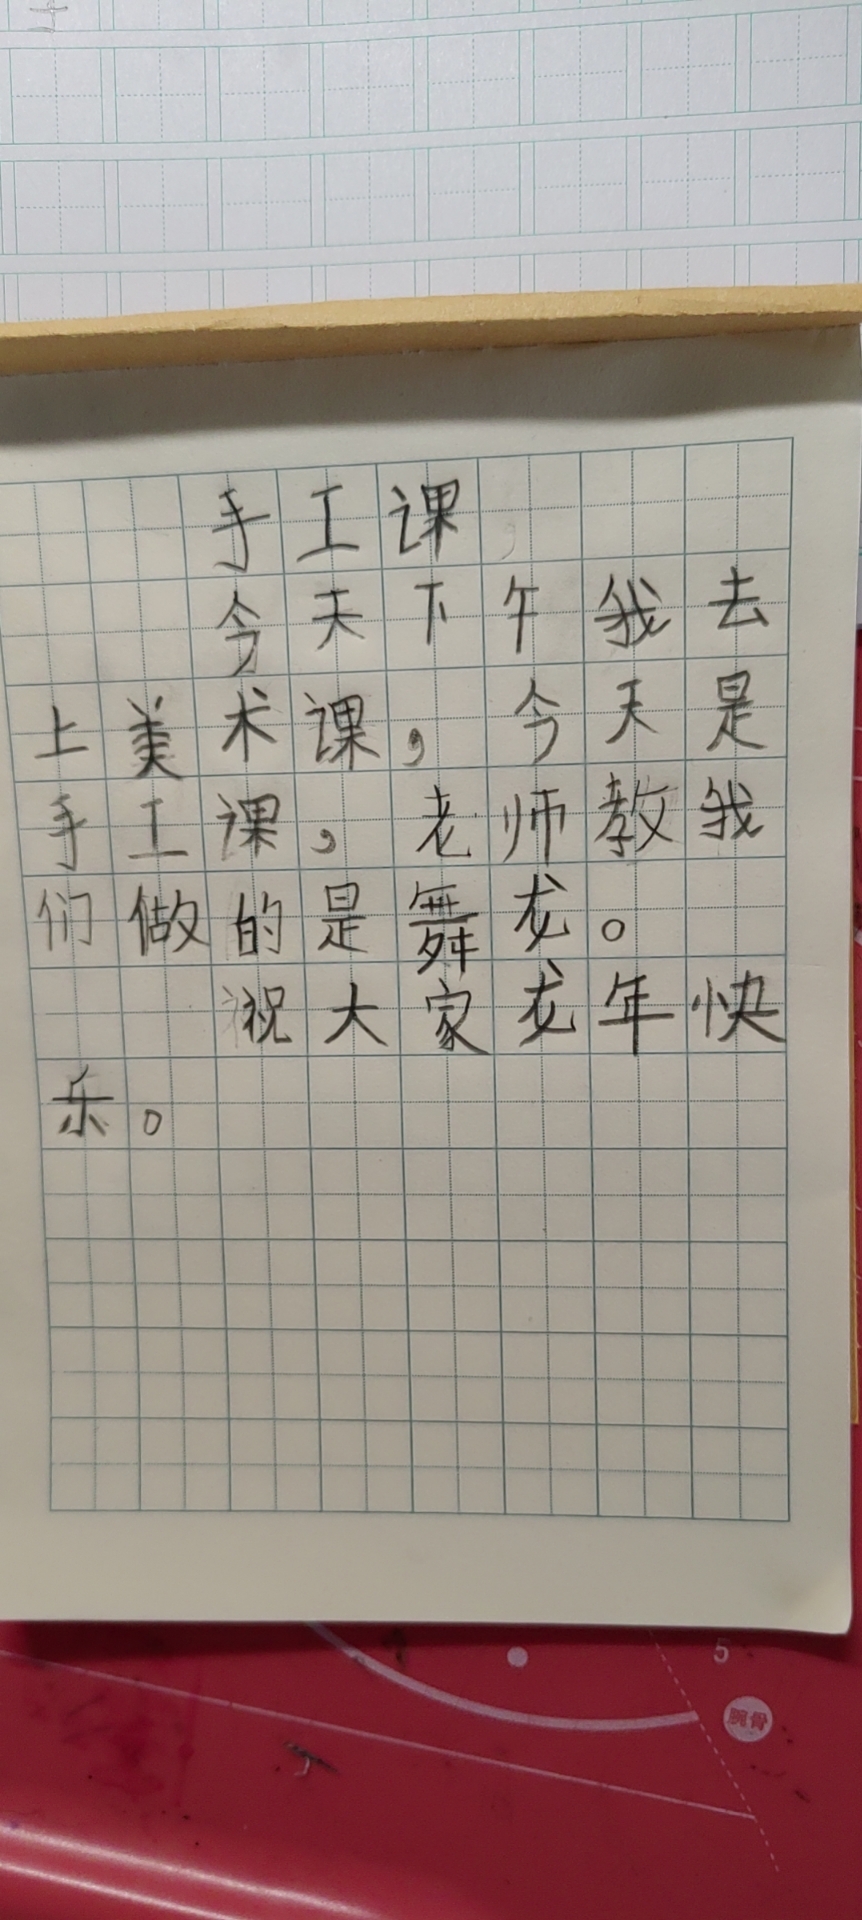 手工课
今天下午我去
上美术课，今天是
手工课，老师教我
们做的是舞龙。
祝大家龙年快
乐。
5
腕骨